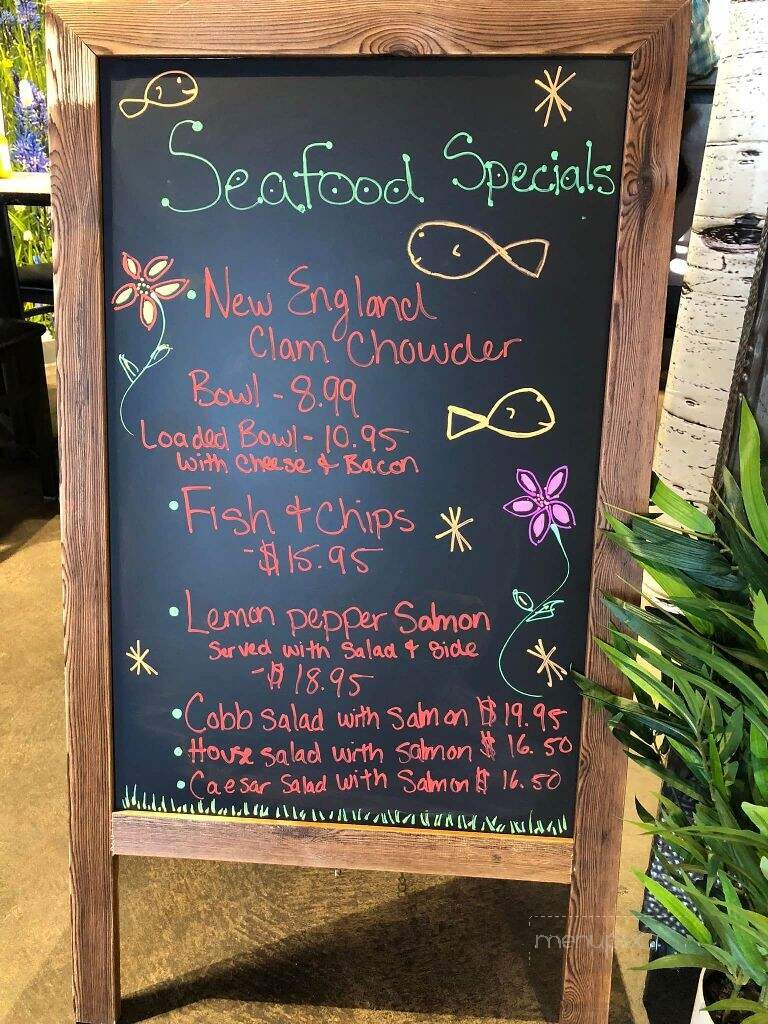 Seafood Specials
• New England
Clam Chowder
Bowl - 8.99
Loaded Bowl - 10.95
with Cheese & Bacon
• Fish & Chips
- $15.95
• Lemon pepper Salmon
Served with Salad & Side
- $18.95
• Cobb Salad with Salmon $19.95
• House salad with Salmon $16.50
• Caesar Salad with Salmon $16.50